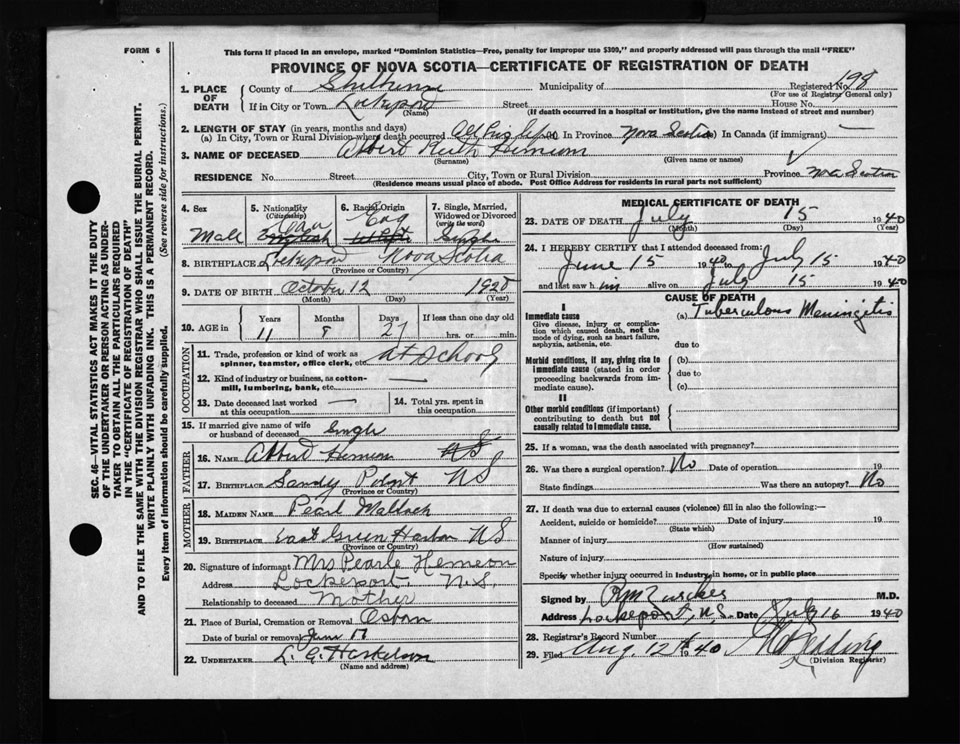 FORM 6
This form if placed in an envelope, marked "Dominion Statistics—Free, penalty for improper use $300," and properly addressed will pass through the mail "FREE"
PROVINCE OF NOVA SCOTIA—CERTIFICATE OF REGISTRATION OF DEATH
SEC. 46—VITAL STATISTICS ACT MAKES IT THE DUTY
OF THE UNDERTAKER OR PERSON ACTING AS UNDER-
TAKER TO OBTAIN ALL THE PARTICULARS REQUIRED
IN THE "CERTIFICATE OF REGISTRATION OF DEATH"
AND TO FILE THE SAME WITH THE DIVISION REGISTRAR WHO SHALL ISSUE THE BURIAL PERMIT.
WRITE PLAINLY WITH UNFADING INK. THIS IS A PERMANENT RECORD.
Every item of information should be carefully supplied. (See reverse side for instructions.)
1. PLACE OF DEATH
County of Shelburne Municipality of Registered No. 198
(For use of Registrar General only)
If in City or Town Lockeport Street House No.
(Name) (If death occurred in a hospital or institution, give the name instead of street and number)
2. LENGTH OF STAY (in years, months and days)
(a) In City, Town or Rural Division where death occurred All his life In Province Nova Scotia In Canada (if immigrant) —
3. NAME OF DECEASED Albert Hemeon
(Surname) (Given name or names)
RESIDENCE No. Street City, Town or Rural Division Province Nova Scotia
(Residence means usual place of abode. Post Office Address for residents in rural parts not sufficient)
4. Sex
Male
5. Nationality
(Citizenship)
Can
English
6. Racial Origin
Eng
White
7. Single, Married,
Widowed or Divorced
(write the word)
Single
8. BIRTHPLACE Lockeport Nova Scotia
(Province or Country)
9. DATE OF BIRTH October 12 1928
(Month) (Day) (Year)
10. AGE in
Years Months Days If less than one day old
11 8 27 hrs. or min.
OCCUPATION
11. Trade, profession or kind of work as
spinner, teamster, office clerk, etc. at School
12. Kind of industry or business, as cotton-
mill, lumbering, bank, etc. —
13. Date deceased last worked
at this occupation —
14. Total yrs. spent in
this occupation
15. If married give name of wife
or husband of deceased Single
FATHER
16. NAME Albert Hemeon NS
17. BIRTHPLACE Sandy Point NS
(Province or Country)
MOTHER
18. MAIDEN NAME Pearl Mallach
19. BIRTHPLACE East Green Harbor NS
(Province or Country)
20. Signature of informant Mrs Pearle Hemeon
Address Lockeport. N.S.
Relationship to deceased Mother
21. Place of Burial, Cremation or Removal Osborn
Date of burial or removal June 17
22. UNDERTAKER L. E.
(Name and address)
MEDICAL CERTIFICATE OF DEATH
23. DATE OF DEATH July 15 1940
(Month) (Day) (Year)
24. I HEREBY CERTIFY that I attended deceased from:
June 15 1940 to July 15 1940
and last saw him alive on July 15 1940
CAUSE OF DEATH
I
Immediate cause
Give disease, injury or complica-
tion which caused death, not the
mode of dying, such as heart failure,
asphyxia, asthenia, etc.
(a) Tuberculous Meningitis
due to
Morbid conditions, if any, giving rise to
immediate cause (stated in order
proceeding backwards from im-
mediate cause).
(b)
due to
(c)
II
Other morbid conditions (if important)
contributing to death but not
causally related to immediate cause.
25. If a woman, was the death associated with pregnancy?
26. Was there a surgical operation? No Date of operation 19
State findings Was there an autopsy? No
27. If death was due to external causes (violence) fill in also the following:—
Accident, suicide or homicide? Date of injury 19
(State which)
Manner of injury
(How sustained)
Nature of injury
Specify whether injury occurred in industry, in home, or in public place
Signed by M.D.
Address Lockeport, N.S. Date July 16 1940
28. Registrar's Record Number
29. Filed Aug. 12th 1940
(Division Registrar)